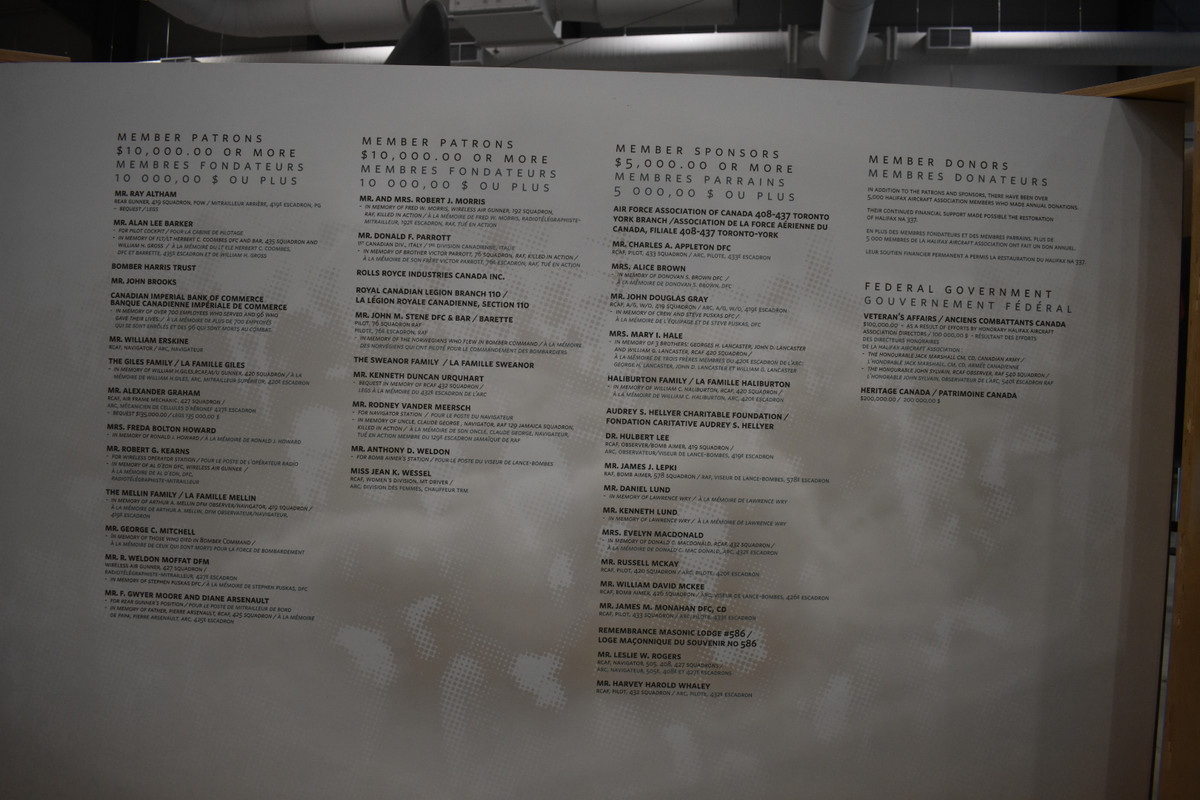 MEMBER PATRONS
$10,000.00 OR MORE
MEMBRES FONDATEURS
10 000,00 $ OU PLUS
MR. RAY ALTHAM
REAR GUNNER, 419 SQUADRON, POW / MITRAILLEUR ARRIÈRE, 419E ESCADRON, PG
- BEQUEST / LEGS
MR. ALAN LEE BARKER
- FOR PILOT COCKPIT / POUR LA CABINE DE PILOTAGE
- IN MEMORY OF FLT/LT HERBERT C. COOMBES DFC AND BAR, 435 SQUADRON AND
WILLIAM H. GROSS / À LA MÉMOIRE DU LT ELE HERBERT C. COOMBES,
DFC ET BARRETTE, 435E ESCADRON ET DE WILLIAM H. GROSS
BOMBER HARRIS TRUST
MR. JOHN BROOKS
CANADIAN IMPERIAL BANK OF COMMERCE
BANQUE CANADIENNE IMPÉRIALE DE COMMERCE
- IN MEMORY OF OVER 700 EMPLOYEES WHO SERVED AND 96 WHO
GAVE THEIR LIVES / À LA MÉMOIRE DE PLUS DE 700 EMPLOYÉS
QUI SE SONT ENRÔLÉS ET DES 96 QUI SONT MORTS AU COMBAT
MR. WILLIAM ERSKINE
RCAF, NAVIGATOR / ARC, NAVIGATEUR
THE GILES FAMILY / LA FAMILLE GILES
- IN MEMORY OF WILLIAM H. GILES, RCAF, M/U GUNNER, 420 SQUADRON / À LA
MÉMOIRE DE WILLIAM H. GILES, ARC, MITRAILLEUR SUPÉRIEUR, 420E ESCADRON
MR. ALEXANDER GRAHAM
RCAF, AIR FRAME MECHANIC, 427 SQUADRON /
ARC, MÉCANICIEN DE CELLULES D'AÉRONEF 427E ESCADRON
- BEQUEST $135,000.00 / LEGS 135 000,00 $
MRS. FREDA BOLTON HOWARD
- IN MEMORY OF RONALD J. HOWARD / À LA MÉMOIRE DE RONALD J. HOWARD
MR. ROBERT G. KEARNS
- FOR WIRELESS OPERATOR STATION / POUR LE POSTE DE L'OPÉRATEUR RADIO
- IN MEMORY OF AL D'EON DFC, WIRELESS AIR GUNNER /
À LA MÉMOIRE DE AL D'EON, DFC,
RADIOTÉLÉGRAPHISTE-MITRAILLEUR
THE MELLIN FAMILY / LA FAMILLE MELLIN
- IN MEMORY OF ARTHUR A. MELLIN DFM OBSERVER/NAVIGATOR, 419 SQUADRON /
À LA MÉMOIRE DE ARTHUR A. MELLIN, DFM OBSERVATEUR/NAVIGATEUR,
419E ESCADRON
MR. GEORGE C. MITCHELL
- IN MEMORY OF THOSE WHO DIED IN BOMBER COMMAND /
À LA MÉMOIRE DE CEUX QUI SONT MORTS POUR LA FORCE DE BOMBARDEMENT
MR. R. WELDON MOFFAT DFM
WIRELESS AIR GUNNER, 427 SQUADRON /
RADIOTÉLÉGRAPHISTE-MITRAILLEUR, 427E ESCADRON
- IN MEMORY OF STEPHEN PUSKAS DFC / À LA MÉMOIRE DE STEPHEN PUSKAS, DFC
MR. F. GWYER MOORE AND DIANE ARSENAULT
- FOR REAR GUNNER'S POSITION / POUR LE POSTE DE MITRAILLEUR DE BORD
- IN MEMORY OF FATHER, PIERRE ARSENAULT, RCAF, 425 SQUADRON / À LA MÉMOIRE
DE PAPA, PIERRE ARSENAULT, ARC, 425E ESCADRON
MEMBER PATRONS
$10,000.00 OR MORE
MEMBRES FONDATEURS
10 000,00 $ OU PLUS
MR. AND MRS. ROBERT J. MORRIS
- IN MEMORY OF FRED W. MORRIS, WIRELESS AIR GUNNER, 192 SQUADRON,
RAF, KILLED IN ACTION / À LA MÉMOIRE DE FRED W. MORRIS, RADIOTÉLÉGRAPHISTE-
MITRAILLEUR, 192E ESCADRON, RAF, TUÉ EN ACTION
MR. DONALD F. PARROTT
1ST CANADIAN DIV., ITALY / 1RE DIVISION CANADIENNE, ITALIE
- IN MEMORY OF BROTHER VICTOR PARROTT, 76 SQUADRON, RAF, KILLED IN ACTION /
À LA MÉMOIRE DE SON FRÈRE VICTOR PARROTT, 76E ESCADRON, RAF, TUÉ EN ACTION
ROLLS ROYCE INDUSTRIES CANADA INC.
ROYAL CANADIAN LEGION BRANCH 110 /
LA LÉGION ROYALE CANADIENNE, SECTION 110
MR. JOHN M. STENE DFC & BAR / BARETTE
PILOT, 76 SQUADRON RAF
PILOTE, 76E ESCADRON, RAF
- IN MEMORY OF THE NORWEGIANS WHO FLEW IN BOMBER COMMAND / À LA MÉMOIRE
DES NORVÉGIENS QUI ONT PILOTÉ POUR LE COMMANDEMENT DES BOMBARDIERS
THE SWEANOR FAMILY / LA FAMILLE SWEANOR
MR. KENNETH DUNCAN URQUHART
- BEQUEST IN MEMORY OF RCAF 432 SQUADRON /
LEGS À LA MÉMOIRE DU 432E ESCADRON DE L'ARC
MR. RODNEY VANDER MEERSCH
- FOR NAVIGATOR STATION / POUR LE POSTE DU NAVIGATEUR
- IN MEMORY OF UNCLE, CLAUDE GEORGE, NAVIGATOR, RAF 129 JAMAICA SQUADRON,
KILLED IN ACTION / À LA MÉMOIRE DE SON ONCLE, CLAUDE GEORGE, NAVIGATEUR,
TUÉ EN ACTION MEMBRE DU 129E ESCADRON JAMAÏQUE DE RAF
MR. ANTHONY D. WELDON
- FOR BOMB AIMER'S STATION / POUR LE POSTE DU VISEUR DE LANCE-BOMBES
MISS JEAN K. WESSEL
RCAF, WOMEN'S DIVISION, MT DRIVER /
ARC, DIVISION DES FEMMES, CHAUFFEUR TRM
MEMBER SPONSORS
$5,000.00 OR MORE
MEMBRES PARRAINS
5 000,00 $ OU PLUS
AIR FORCE ASSOCIATION OF CANADA 408-437 TORONTO
YORK BRANCH / ASSOCIATION DE LA FORCE AÉRIENNE DU
CANADA, FILIALE 408-437 TORONTO-YORK
MR. CHARLES A. APPLETON DFC
RCAF, PILOT, 433 SQUADRON / ARC, PILOTE, 433E ESCADRON
MRS. ALICE BROWN
- IN MEMORY OF DONOVAN S. BROWN DFC /
À LA MÉMOIRE DE DONOVAN S. BROWN, DFC
MR. JOHN DOUGLAS GRAY
RCAF, A/G, W/O, 419 SQUADRON / ARC, A/G, W/O, 419E ESCADRON
- IN MEMORY OF CREW AND STEVE PUSKAS DFC /
À LA MÉMOIRE DE L'ÉQUIPAGE ET DE STEVE PUSKAS, DFC
MRS. MARY I. HALE
- IN MEMORY OF 3 BROTHERS: GEORGE H. LANCASTER, JOHN D. LANCASTER
AND WILLIAM G. LANCASTER, RCAF 420 SQUADRON /
À LA MÉMOIRE DE TROIS FRÈRES MEMBRES DU 420E ESCADRON DE L'ARC:
GEORGE H. LANCASTER, JOHN D. LANCASTER ET WILLIAM G. LANCASTER
HALIBURTON FAMILY / LA FAMILLE HALIBURTON
- IN MEMORY OF WILLIAM C. HALIBURTON, RCAF, 420 SQUADRON /
À LA MÉMOIRE DE WILLIAM C. HALIBURTON, ARC, 420E ESCADRON
AUDREY S. HELLYER CHARITABLE FOUNDATION /
FONDATION CARITATIVE AUDREY S. HELLYER
DR. HULBERT LEE
RCAF, OBSERVER/BOMB AIMER, 419 SQUADRON /
ARC, OBSERVATEUR/VISEUR DE LANCE-BOMBES, 419E ESCADRON
MR. JAMES J. LEPKI
RAF, BOMB AIMER, 578 SQUADRON / RAF, VISEUR DE LANCE-BOMBES, 578E ESCADRON
MR. DANIEL LUND
- IN MEMORY OF LAWRENCE WRY / À LA MÉMOIRE DE LAWRENCE WRY
MR. KENNETH LUND
- IN MEMORY OF LAWRENCE WRY / À LA MÉMOIRE DE LAWRENCE WRY
MRS. EVELYN MACDONALD
- IN MEMORY OF DONALD C. MACDONALD, RCAF, 432 SQUADRON /
À LA MÉMOIRE DE DONALD C. MAC DONALD, ARC, 432E ESCADRON
MR. RUSSELL MCKAY
RCAF, PILOT, 420 SQUADRON / ARC, PILOTE, 420E ESCADRON
MR. WILLIAM DAVID MCKEE
RCAF, BOMB AIMER, 426 SQUADRON / ARC, VISEUR DE LANCE-BOMBES, 426E ESCADRON
MR. JAMES M. MONAHAN DFC, CD
RCAF, PILOT, 433 SQUADRON / ARC, PILOTE, 433E ESCADRON
REMEMBRANCE MASONIC LODGE #586 /
LOGE MAÇONNIQUE DU SOUVENIR NO 586
MR. LESLIE W. ROGERS
RCAF, NAVIGATOR, 505, 408, 427 SQUADRONS /
ARC, NAVIGATEUR, 505E, 408E ET 427E ESCADRONS
MR. HARVEY HAROLD WHALEY
RCAF, PILOT, 432 SQUADRON / ARC, PILOTE, 432E ESCADRON
MEMBER DONORS
MEMBRES DONATEURS
IN ADDITION TO THE PATRONS AND SPONSORS, THERE HAVE BEEN OVER
5,000 HALIFAX AIRCRAFT ASSOCIATION MEMBERS WHO MADE ANNUAL DONATIONS.
THEIR CONTINUED FINANCIAL SUPPORT MADE POSSIBLE THE RESTORATION
OF HALIFAX NA 337.
EN PLUS DES MEMBRES FONDATEURS ET DES MEMBRES PARRAINS, PLUS DE
5 000 MEMBRES DE LA HALIFAX AIRCRAFT ASSOCIATION ONT FAIT UN DON ANNUEL.
LEUR SOUTIEN FINANCIER PERMANENT A PERMIS LA RESTAURATION DU HALIFAX NA 337.
FEDERAL GOVERNMENT
GOUVERNEMENT FÉDÉRAL
VETERAN'S AFFAIRS / ANCIENS COMBATTANTS CANADA
$100,000.00 - AS A RESULT OF EFFORTS BY HONORARY HALIFAX AIRCRAFT
ASSOCIATION DIRECTORS / 100 000,00 $ - RÉSULTANT DES EFFORTS
DES DIRECTEURS HONORAIRES
DE LA HALIFAX AIRCRAFT ASSOCIATION :
- THE HONOURABLE JACK MARSHALL CM, CD, CANADIAN ARMY /
L'HONORABLE JACK MARSHALL, CM, CD, ARMÉE CANADIENNE
- THE HONOURABLE JOHN SYLVAIN, RCAF OBSERVER, RAF 540 SQUADRON /
L'HONORABLE JOHN SYLVAIN, OBSERVATEUR DE L'ARC, 540E ESCADRON RAF
HERITAGE CANADA / PATRIMOINE CANADA
$200,000.00 / 200 000,00 $